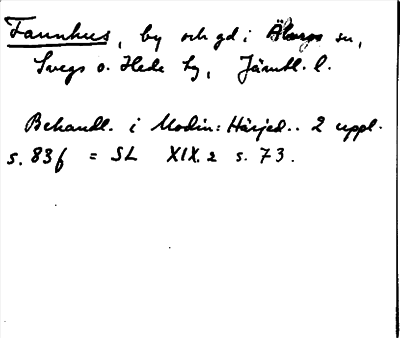 Fannhus, by och gd i Älvros sn,
Svegs o. Hede tg, Jämtl. l.
Behandl. i Modin: Härjed.. 2 uppl.
s. 83f = SL XIX.2 s. 73.